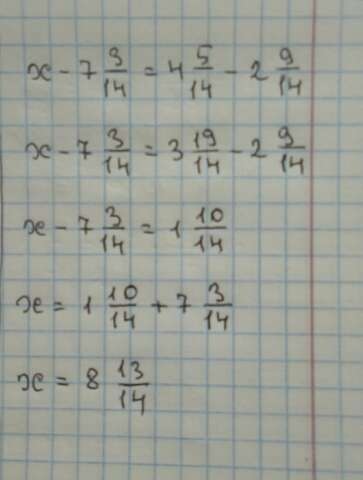 x - 7 3/14 = 4 5/14 - 2 9/14
x - 7 3/14 = 3 19/14 - 2 9/14
x - 7 3/14 = 1 10/14
x = 1 10/14 + 7 3/14
x = 8 13/14